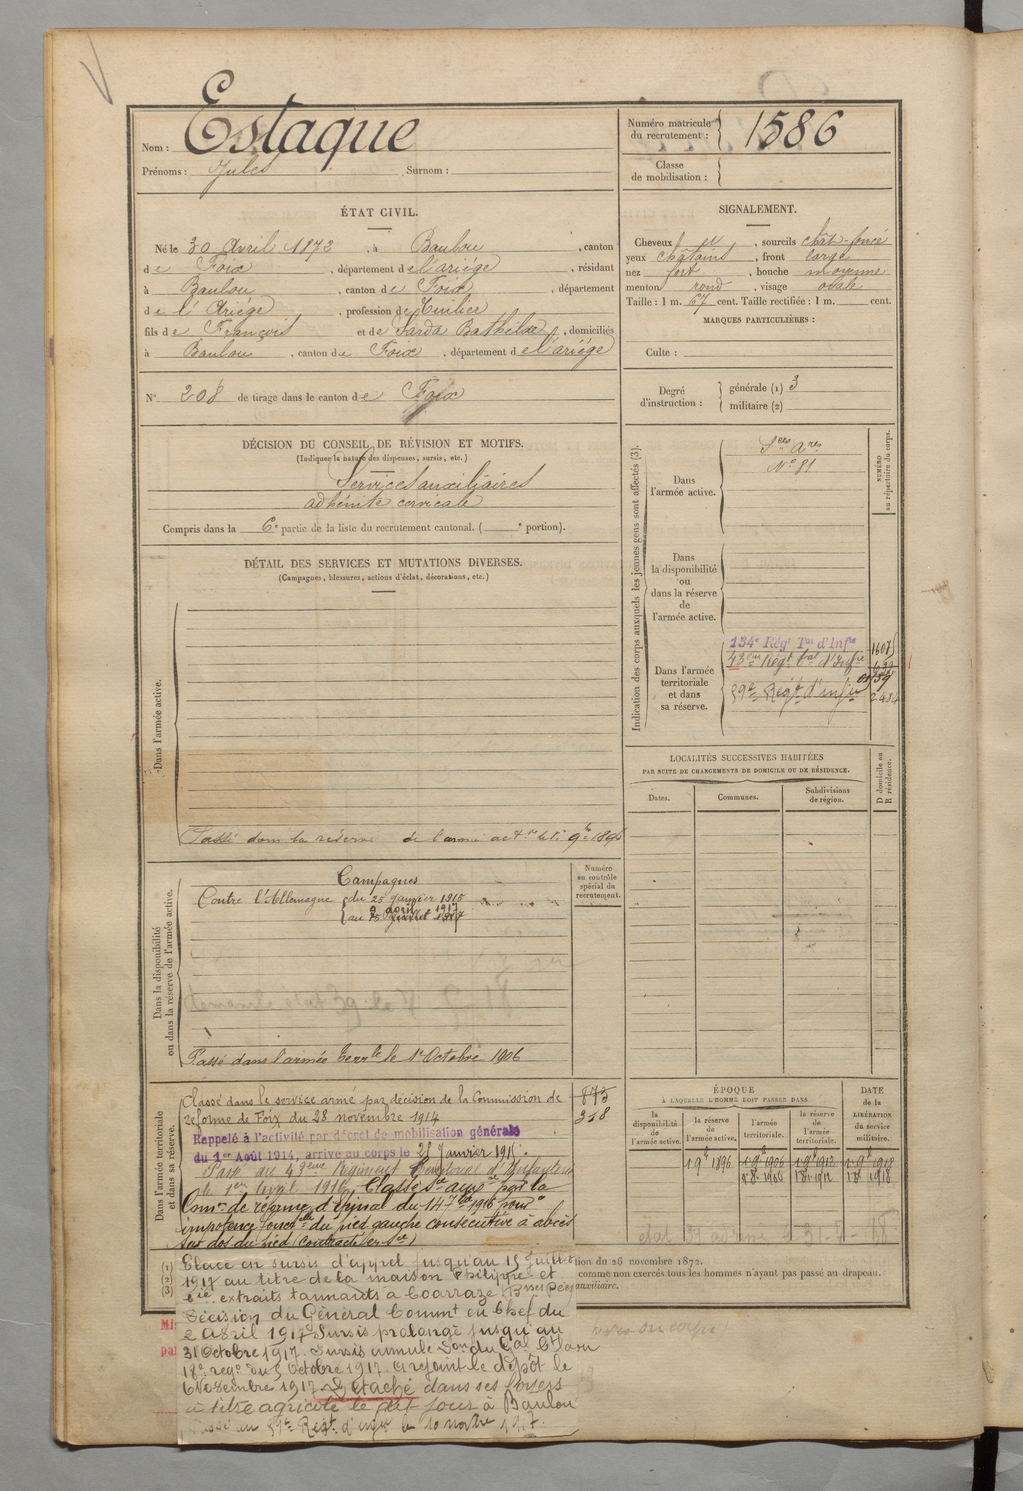 Nom : Estaque
Prénoms : Jules Surnom :
Numéro matricule du recrutement : 1586
Classe de mobilisation :
ÉTAT CIVIL.
Né le 30 Avril 1872, à Baulou, canton
de Foix, département de l'ariége, résidant
à Baulou, canton de Foix, département
de l'Ariége, profession de Tuilier
fils de François et de Sarda Bathilde, domiciliés
à Baulou, canton de Foix, département de l'ariége
N° 208 de tirage dans le canton de Foix
SIGNALEMENT.
Cheveux, sourcils chât-foncé
yeux châtains, front large
nez fort, bouche moyenne
menton rond, visage ovale
Taille : 1 m. 67 cent. Taille rectifiée : 1 m. cent.
MARQUES PARTICULIÈRES :
Culte :
Degré d'instruction : générale (1) 3
militaire (2)
DÉCISION DU CONSEIL DE RÉVISION ET MOTIFS.
(Indiquer la nature des dispenses, sursis, etc.)
Services auxiliaires
adénite cervicale
Compris dans la 6e partie de la liste du recrutement cantonal. ( e portion).
Indication des corps auxquels les jeunes gens sont affectés (3).
NUMÉRO au répertoire du corps.
Dans l'armée active.
Sces Ares
N° 81
Dans la disponibilité ou dans la réserve de l'armée active.
Dans l'armée territoriale et dans sa réserve.
134e Régt Tal d'Infie 1607
43eme Régt tal d'Infie
59e Regt d'infie
DÉTAIL DES SERVICES ET MUTATIONS DIVERSES.
(Campagnes, blessures, actions d'éclat, décorations, etc.)
Dans l'armée active.
Passé dans la réserve de l'armée active le 1er 9bre 1896
LOCALITÉS SUCCESSIVES HABITÉES
PAR SUITE DE CHANGEMENTS DE DOMICILE OU DE RÉSIDENCE.
Dates. Communes. Subdivisions de région. D domicile ou R résidence.
Dans la disponibilité ou dans la réserve de l'armée active.
Numéro au contrôle spécial du recrutement.
Campagnes
Contre l'Allemagne du 25 janvier 1915
au 9 avril 1917
Passé dans l'armée terrle le 1er Octobre 1906
Dans l'armée territoriale et dans sa réserve.
873
318
Classé dans le service armé par décision de la Commission de
réforme de Foix du 28 novembre 1914
Rappelé à l'activité par décret de mobilisation générale
du 1er Août 1914, arrivé au corps le 25 Janvier 1915.
Passé au 43eme Régiment Territorial d'Infanterie
le 1er Avril 1916, Classé Sce auxre par la
Comon de réforme d'Epinal du 14 7bre 1916 pour
impotence fonctlle du pied gauche consécutive à abcès
sur dos du pied (contracté en Sce)
ÉPOQUE
À LAQUELLE L'HOMME DOIT PASSER DANS
la disponibilité de l'armée active. la réserve de l'armée active. l'armée territoriale. la réserve de l'armée territoriale. DATE de la LIBÉRATION du service militaire.
1 9bre 1896 1 9bre 1906 1 9bre 1912 1 9bre 1918
1 8bre 1906 1 8bre 1912 1 8bre 1918
Placé en sursis d'appel jusqu'au 15 juillet
1917 au titre de la maison Philippe et
Cie extraits tannants à Coarraze (Bsses Pées)
Décision du Général Commt en Chef du
2 Avril 1917. Sursis prolongé jusqu'au
31 Octobre 1917. Sursis annulé Don du Gal Ct la
18e rego du 5 Octobre 1917. A rejoint le dépôt le
6 Novembre 1917. Détaché dans ses foyers
à titre agricole le dit jour à Baulou
Passé au 59e Regt d'infie le 10 novbre 1917.
(1)
(2)
(3)
tion du 26 novembre 1872.
comme non exercés tous les hommes n'ayant pas passé au drapeau.
auxiliaire.